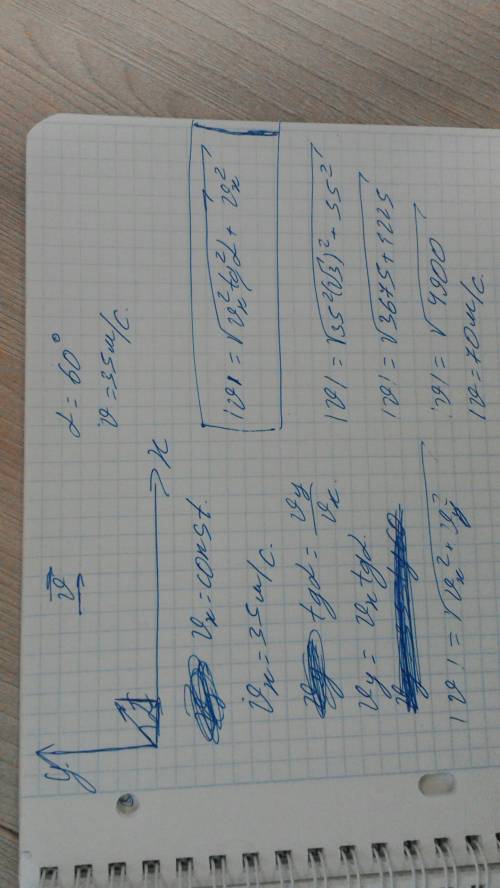 y
x
v⃗
α = 60°
v = 35 м/с.
vx = const.
vx = 35 м/с.
tgα = vy/vx
vy = vx tgα
|v| = √(vx² + vy²)
|v| = √(vx² tg²α + vx²)
|v| = √(35²(√3)² + 35²)
|v| = √(3675 + 1225)
|v| = √4900
|v| = 70 м/с.